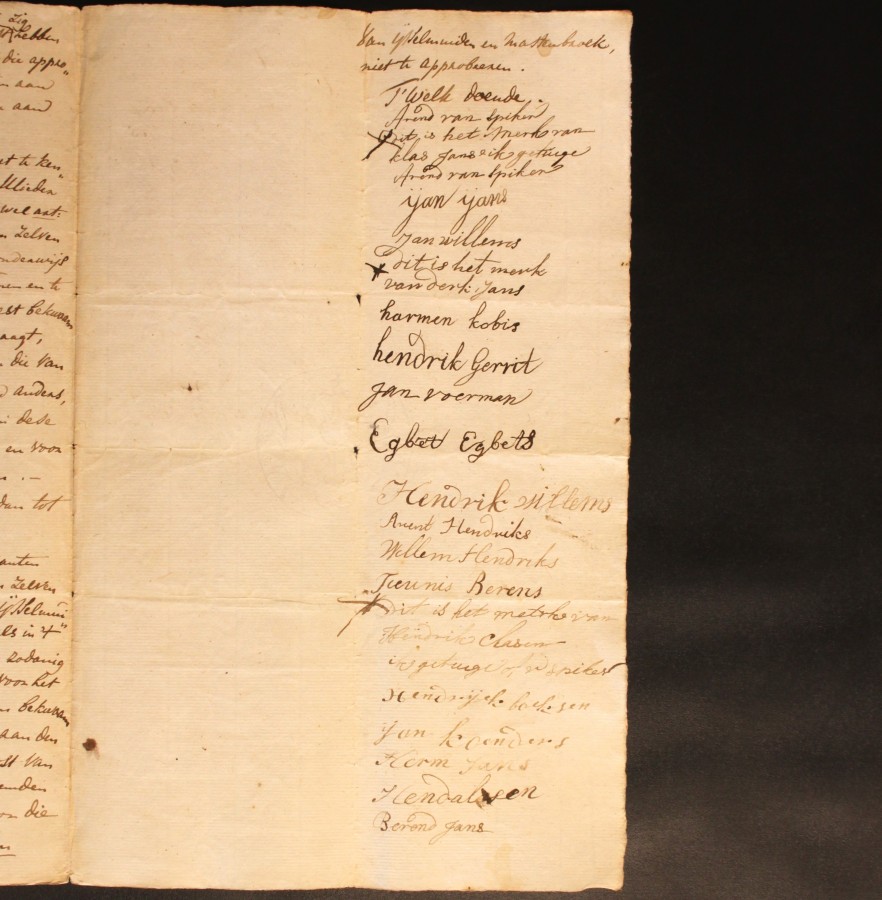 zig
hebben
die appro„
aan
aan
te ken„
Ulieden
wel aat:
Zelven
onderwijs
en te
est bekwaam
aagt,
die van
anders,
dese
en voor
dan tot
Zelven
IJsselmui„
als in 't
zodanig
voor het
bekwaam
aan den
st van
die
van IJsselmuiden en Mastenbroek,
niet te approbeeren.
T'Welk doende.
Arend van Spiker
dit is het Merk van
klas Jans ik getuige
Arend van Spiker
ijan ijans
Jan willems
dit is het merk
van derk Jans
harmen kobis
hendrik Gerrit
Jan voerman
Egbet Egbets
Hendrik willems
Arent Hendriks
Willem Hendriks
Teunis Berens
dit is het merk van
Hendrik Clasen
ik getuige spiker
Hendrijck
ijan koenders
Herm Jans
Berend Jans